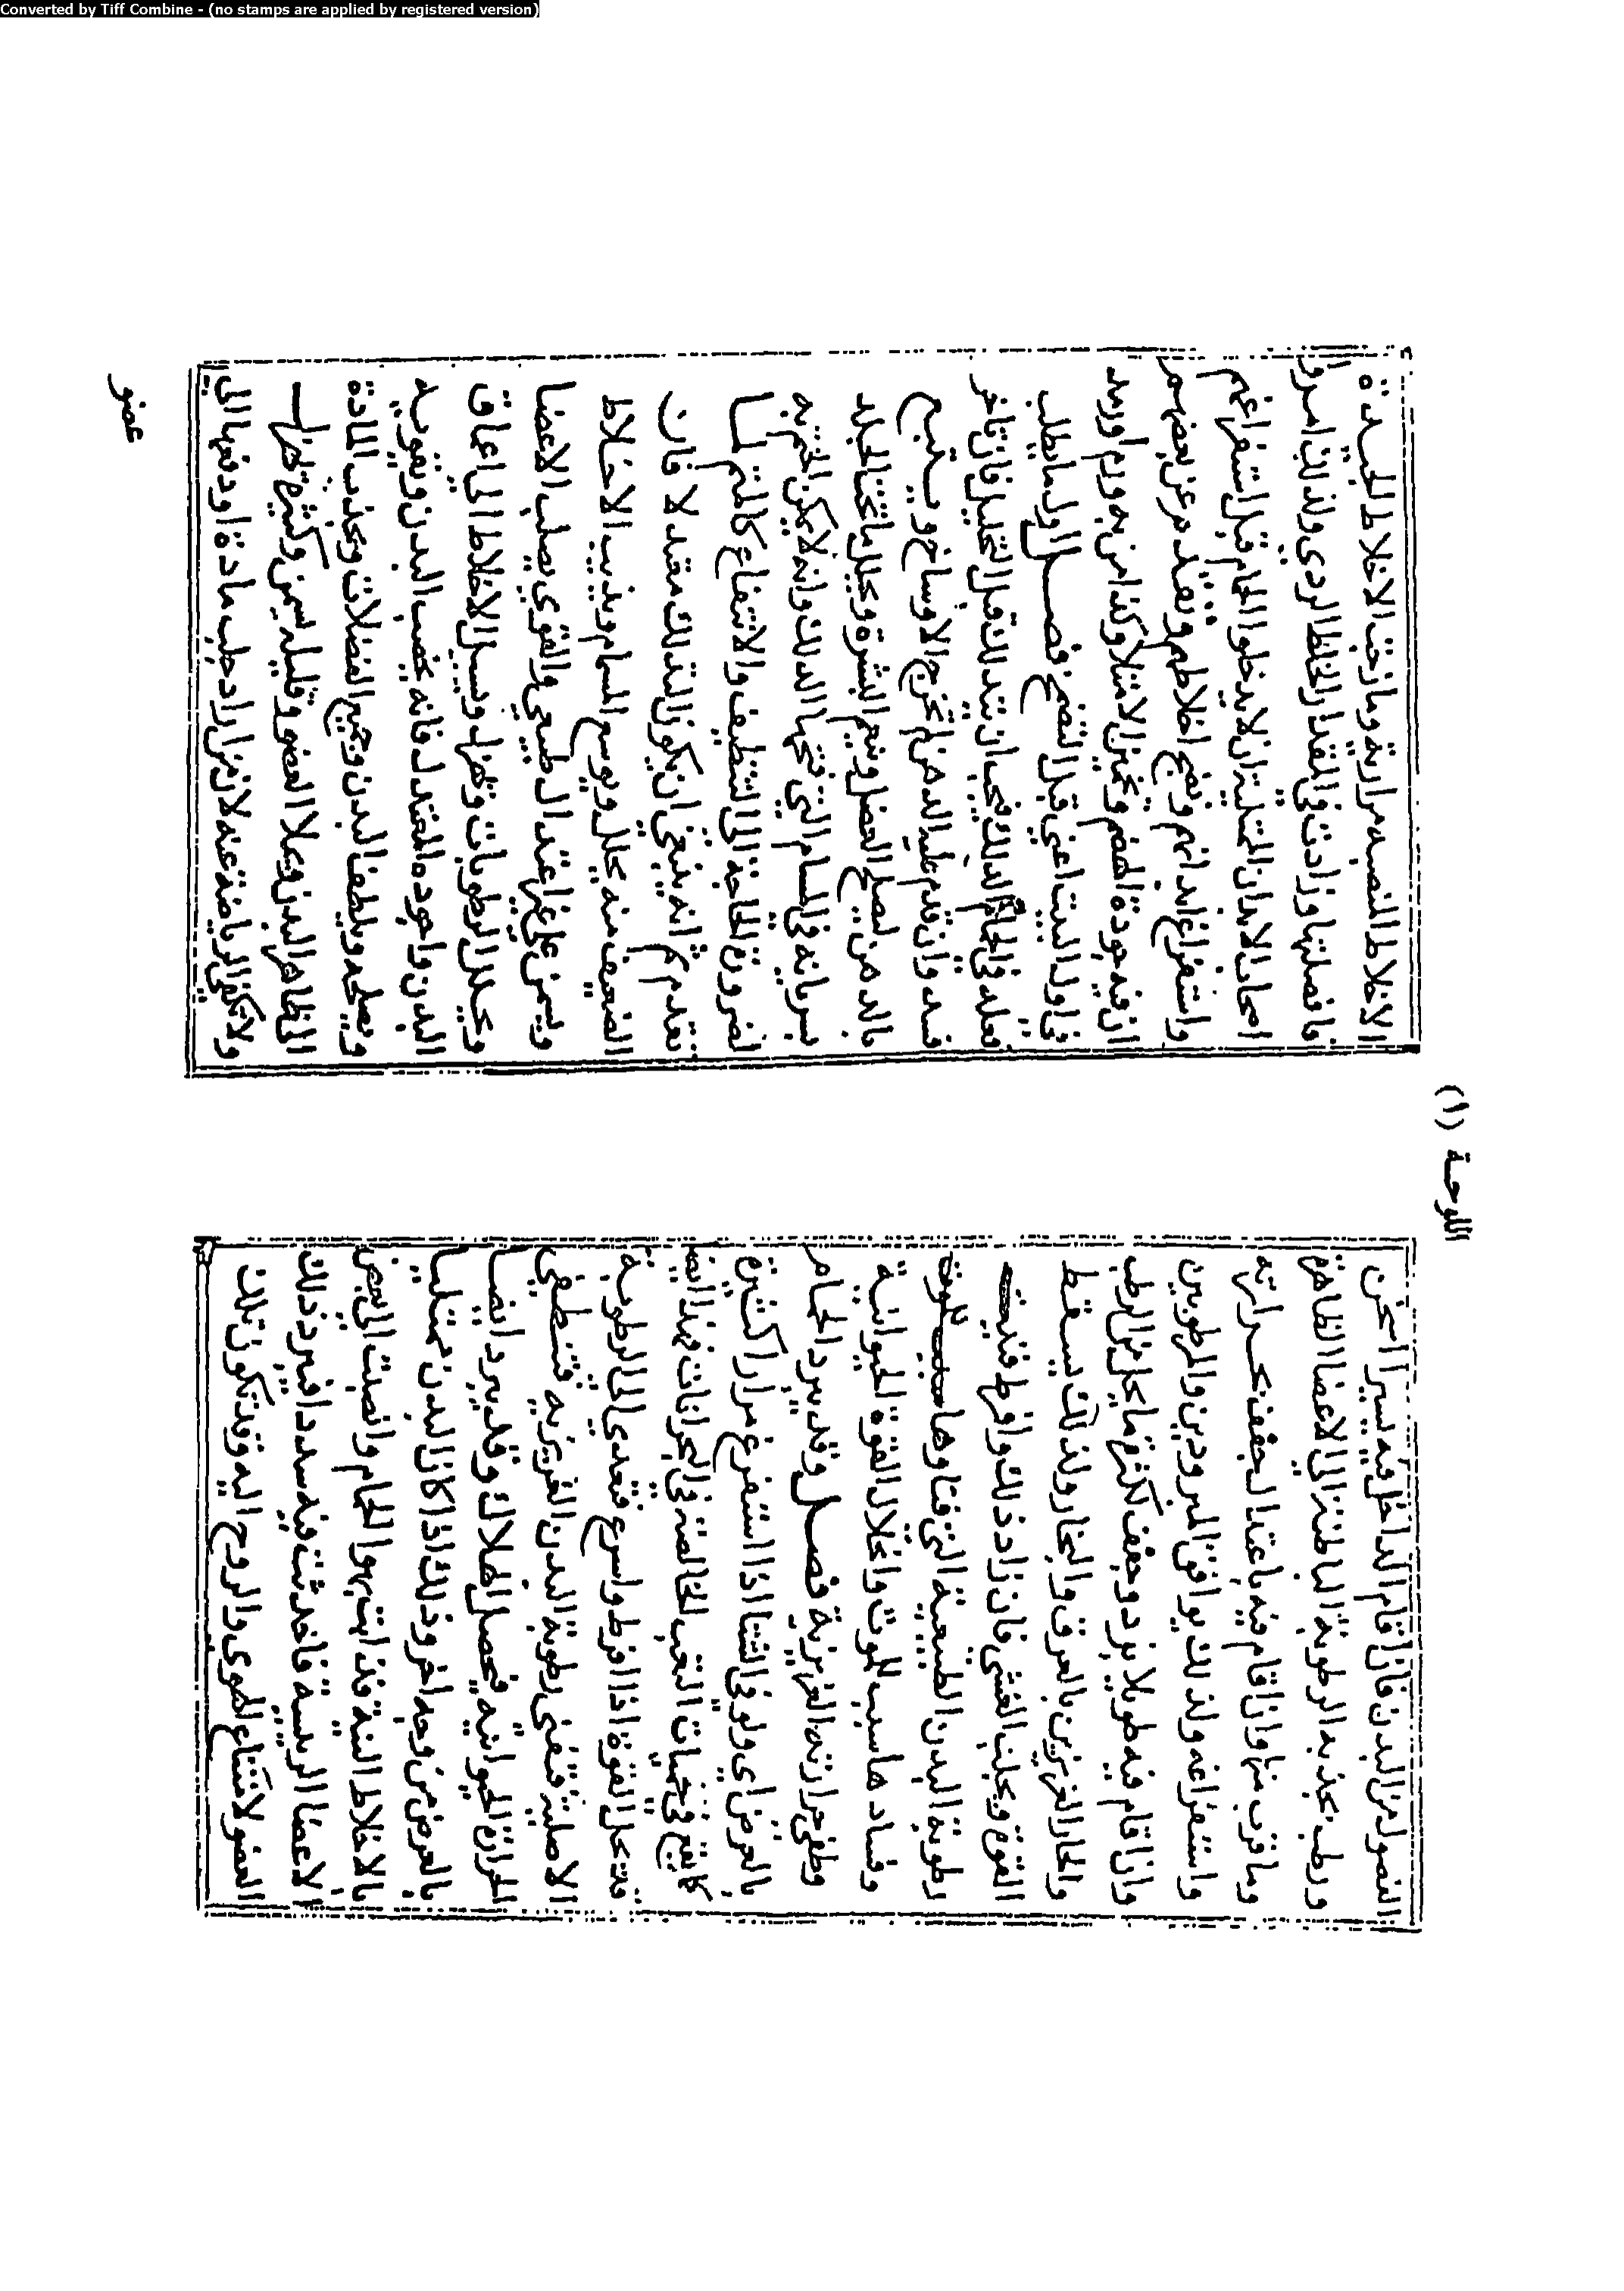 Converted by Tiff Combine - (no stamps are applied by registered version)
اللوحة (١)
الفضول من البدن فان اقام الداخل فيه يسيرا اسخن
ورطب بجذبه الرطوبة الباطنة الى الاعضا الظاهرة
وما قرب منها وان اقام فيه باعتدال جفف بحرارته
واستفراغه ولذلك يوافق المبرودين والمرطوبين
وان اقام فيه طويلا برد وجفف لكثرة ما يحلل من الرطب
والحار الغريزين بالعرق والبخار ولذلك يسقط
القوة ويجلب الغشى فان زاد ذلك وافرط فنيت
رطوبة البدن الطبيعية التي فناوها الموت
وفسادها سبب الموت واختلال القوة الحيوانية
وطفى حرارته الغريزية فصل وقد يبرد الحمام
بالعرض اي ولو في الشتا اذا استفرغ مرارا كثيرة
كما يقع في حميات التعب الخالصة في البحرانات فهذا ايضا
فتتحلل القوة اذا افرط واسرع فتعدى الى الرطوبة
الاصلية فتفنى رطوبة البدن الغريزية فتنطفي
الحرارة الحيوانية فيحصل الهلاك وقد يبرد ايضا
بالعرض من وجه اخر وذلك اذا كان البدن ممتليا
بالاخلاط النية فذابت بهوا الحمام وانصبت الى بعض
الاعضا الريسة فاحدثت فيه سددا فيبرد ذلك
العضو لامتناع الهوى والروح اليه وقد تكون تلك
الاخلاط المنصبه مرارية وما زجت الاخلاط الجيدة
فافسدتها وزادت في المقدار الخلط الردى ولذلك امروا
اصحاب الابدان الممتلية ان لا يدخلوا الحمام قبل استفراغهم
واستفراغ ابدانهم ونضج اخلاطهم ونقله م عن بعضهم
ان فيه جودة الهضم وتخيرا لامتلا وكذا من به ورم اورمد
في اول البيت اعني قبل النضج فصل اول ما يطلب
فعله في الحمام الدلك يجب ان تبتدلك قبل التحليل فان تاخر
فسد وان قدم عليه الدهن لم تخرج الاوساخ ويستتبع
بالدهن ليصلح العضل وينعم البشرة ويحلل ما تحت الجلد
بسريانه في المسام التي فتحها الدلك وانه لا يمكن الختم به
لضرورة الحاجة الى التنظيف والانتفاع كالختم لما
تقدم ثم انه ينبغي ان يكون التدلك معتدلا فان
الضعيف منه يحلل ويوسع المسام ويذيب الاخلاط
ويسمن على غير اعتدال طبيعي والقوي يصلب الاعضا
ويحلل الرطوبات وتهزله ويسيل الاخلاط الى اعماق
البدن واجوده المعتدل فانه يخصب البدن ويقويه
ويصلحه ويلطف البدن ويهيج الفضلات ويجذب المادة
الى ظاهر البدن ويملا العضو وقليله يسمن وكثيره تهزل
ولا تكفى الرياضة عنه لان من اراد جلب مادة او دفعها الى
عضو